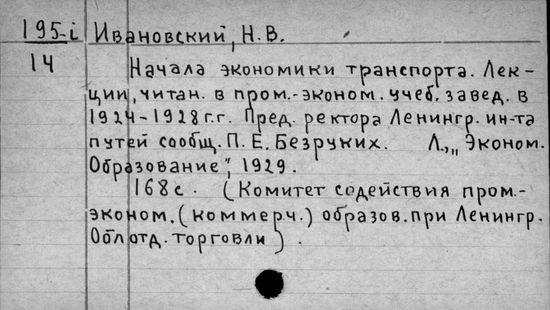 195-i Ивановский, Н.В.
14 Начала экономики транспорта. Лек-
ции, читан. в пром.-эконом. учеб. завед. в
1924-1928 г.г. Пред. ректора Ленингр. ин-та
путей сообщ. П. Е. Безруких. Л., „Эконом.
Образование", 1929.
168 с. (Комитет содействия пром.-
эконом. (коммерч.) образов. при Ленингр.
Облотд. торговли).